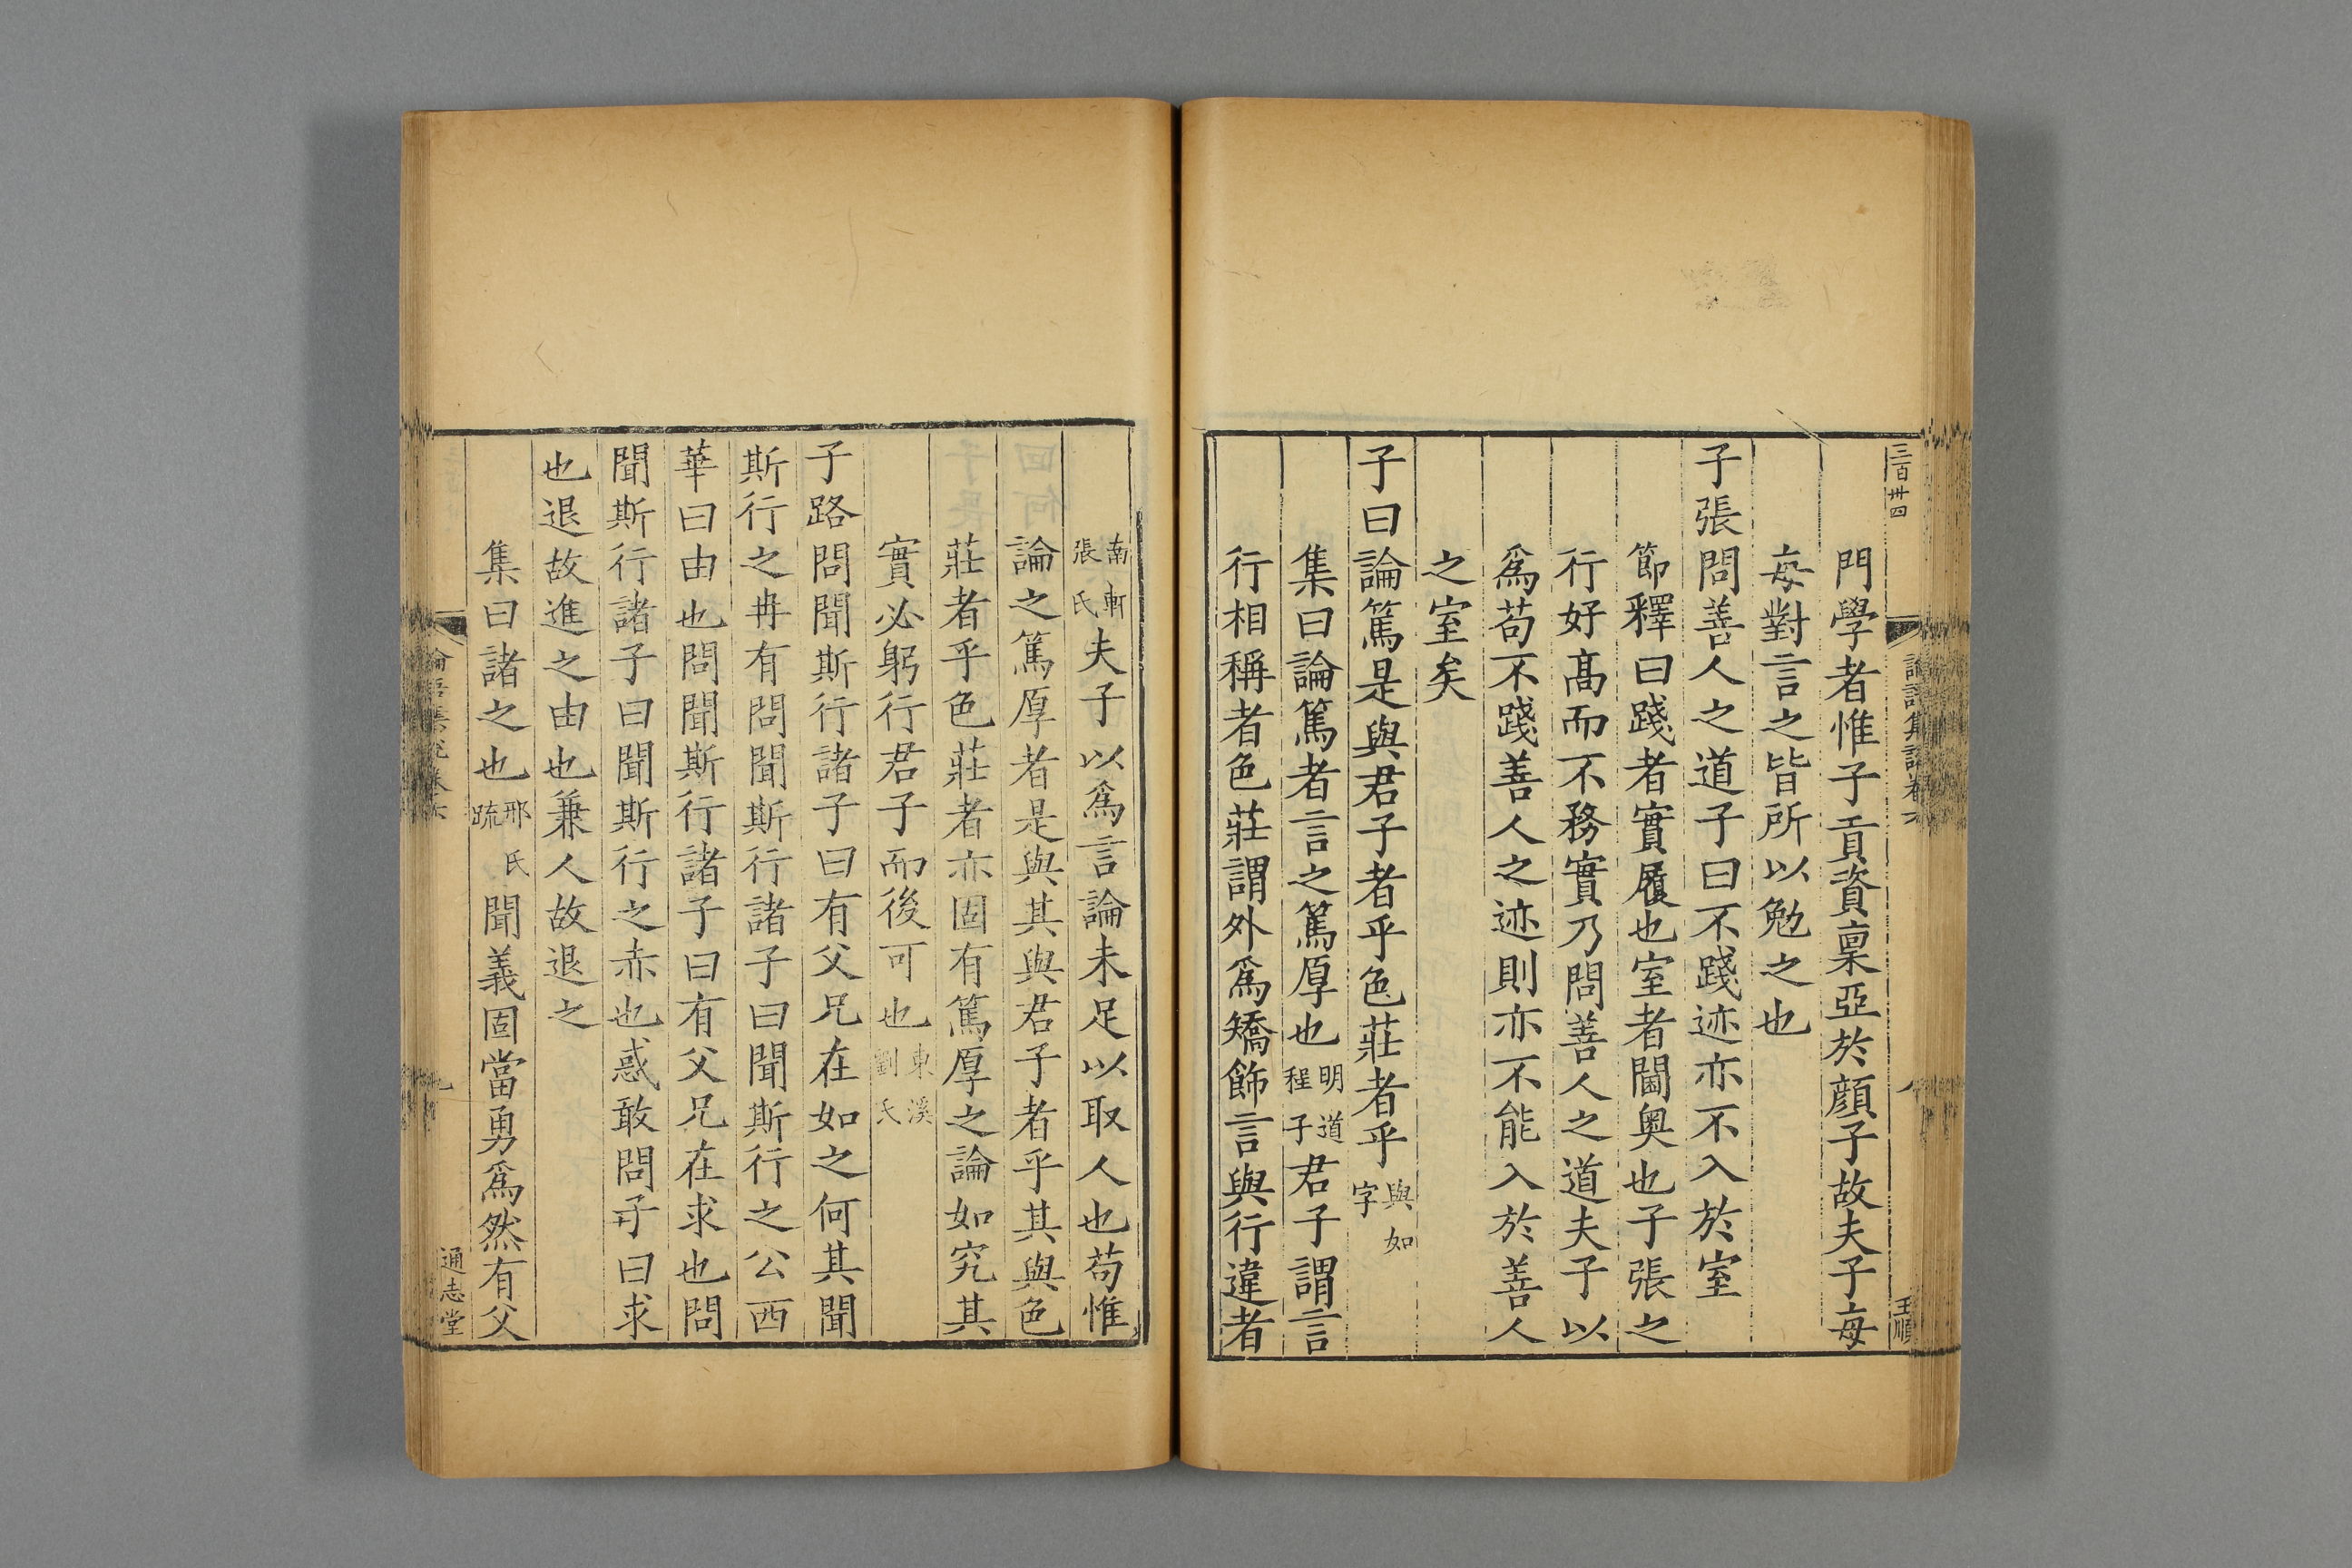 三百卅四
論語集說卷六
八
王順
門學者惟子貢資稟亞於顔子故夫子每
每對言之皆所以勉之也
子張問善人之道子曰不踐迹亦不入於室
節釋曰踐者實履也室者閫奥也子張之
行好髙而不務實乃問善人之道夫子以
爲苟不踐善人之迹則亦不能入於善人
之室矣
子曰論篤是與君子者乎色莊者乎與如字
集曰論篤者言之篤厚也明道程子君子謂言
行相稱者色莊謂外爲矯飾言與行違者
南軒張氏夫子以爲言論未足以取人也苟惟
論之篤厚者是與其與君子者乎其與色
莊者乎色莊者亦固有篤厚之論如究其
實必躬行君子而後可也東溪劉氏
子路問聞斯行諸子曰有父兄在如之何其聞
斯行之冉有問聞斯行諸子曰聞斯行之公西
華曰由也問聞斯行諸子曰有父兄在求也問
聞斯行諸子曰聞斯行之赤也惑敢問子曰求
也退故進之由也兼人故退之
集曰諸之也邢氏疏聞義固當勇爲然有父
論語集說卷六
九
通志堂